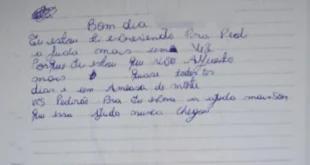 Bom dia
Eu estou ti escrevendo Pra Pedi
a Juda mais uma Vez
Porque Eu estou que
mais Quase todos os
dias e em Ameasa de morte
vs Pedirão Pra Eu a ajuda mais
Que essa ajuda nunca chegou